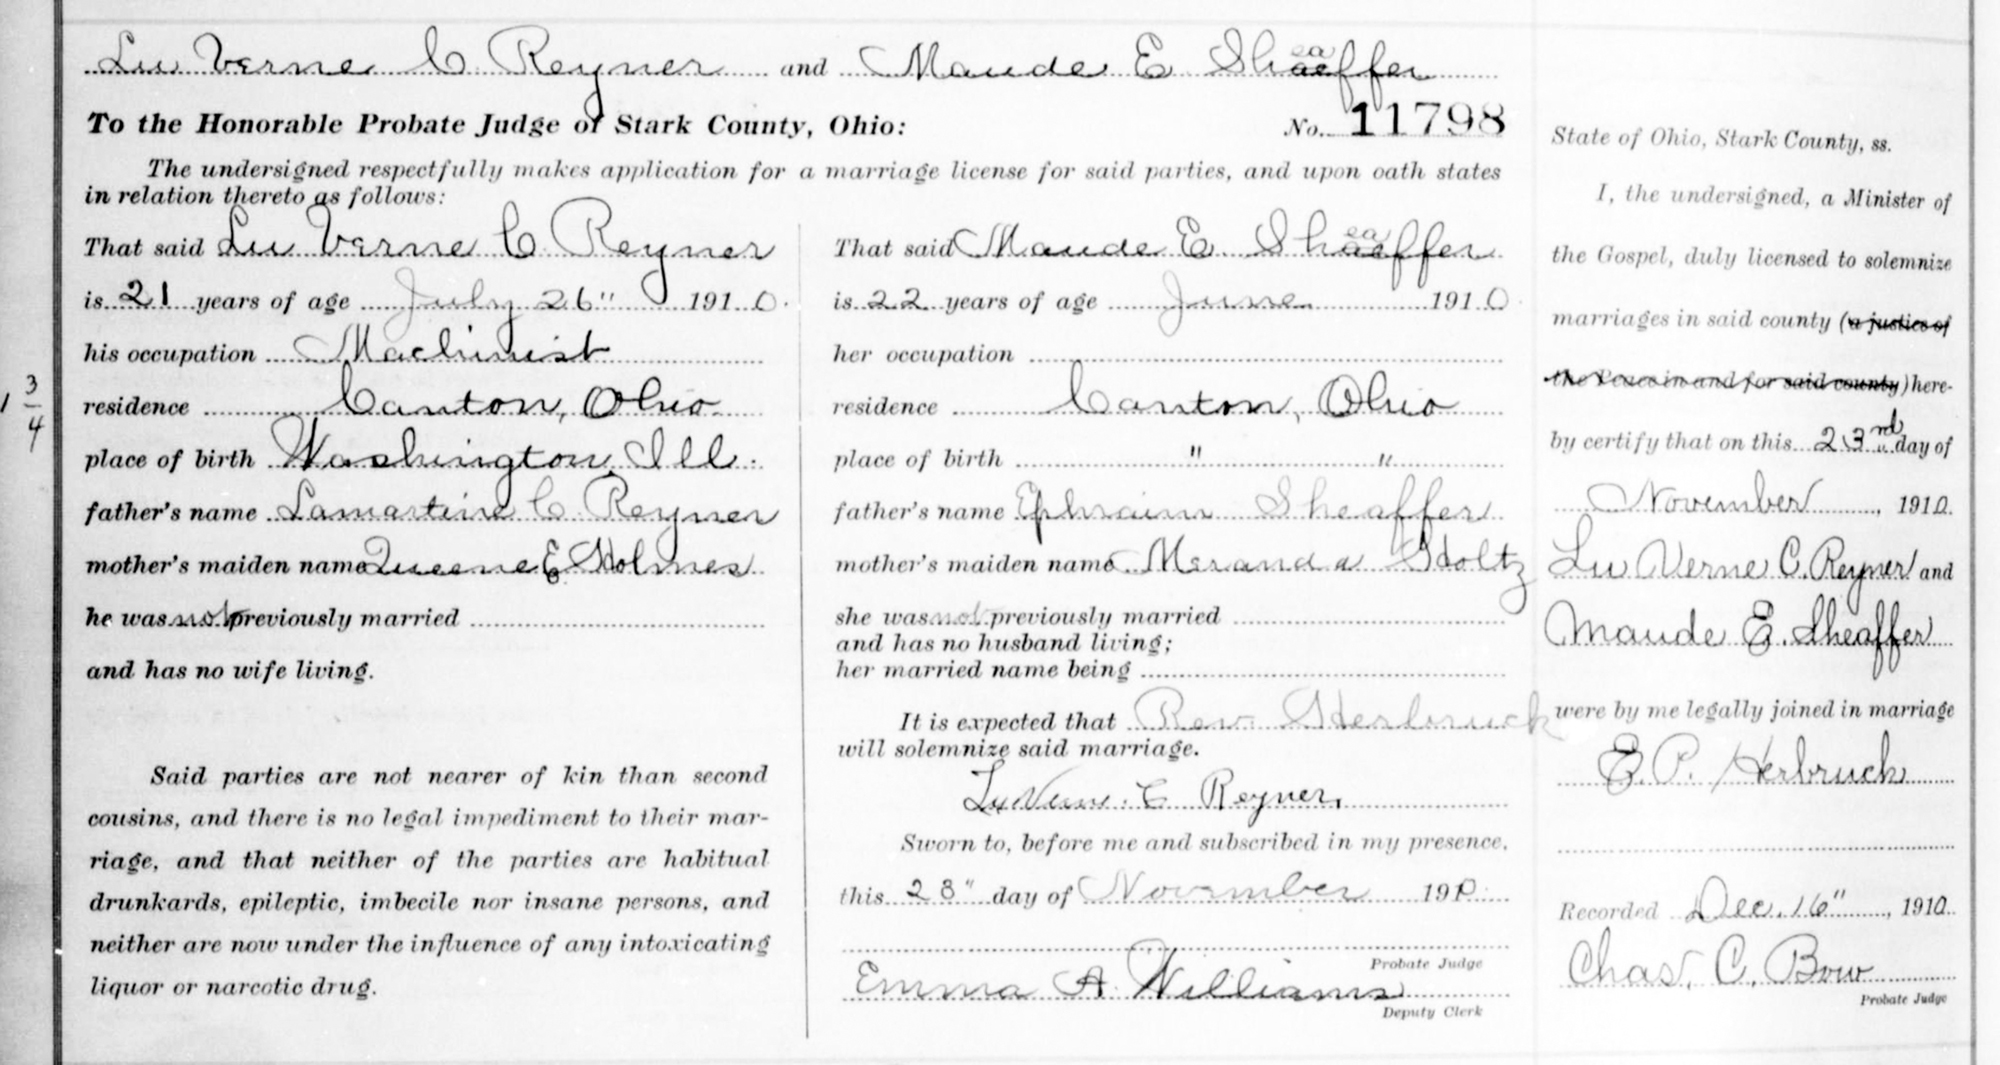 Lu Verne C Reyner and Maude E Sheaffer
To the Honorable Probate Judge of Stark County, Ohio: No. 11798
The undersigned respectfully makes application for a marriage license for said parties, and upon oath states
in relation thereto as follows:
That said Lu Verne C. Reyner
is 21 years of age July 26" 1910.
his occupation Machinist
residence Canton, Ohio.
place of birth Washington, Ill.
father's name Lamartine C. Reyner
mother's maiden name Queene E Holmes
he was not previously married
and has no wife living.
Said parties are not nearer of kin than second
cousins, and there is no legal impediment to their mar-
riage, and that neither of the parties are habitual
drunkards, epileptic, imbecile nor insane persons, and
neither are now under the influence of any intoxicating
liquor or narcotic drug.
That said Maude E. Sheaffer
is 22 years of age June 1910
her occupation
residence Canton, Ohio
place of birth " "
father's name Ephraim Sheaffer
mother's maiden name Meranda Holtz
she was not previously married
and has no husband living;
her married name being
It is expected that Rev. Herbruck
will solemnize said marriage.
LuVerne. C Reyner.
Sworn to, before me and subscribed in my presence,
this 23" day of November 1910.
Probate Judge
Emma A. Williams
Deputy Clerk
State of Ohio, Stark County, ss.
I, the undersigned, a Minister of
the Gospel, duly licensed to solemnize
marriages in said county (a justice of
the Peace in and for said county) here-
by certify that on this 23nd day of
November, 1910.
Lu Verne C. Reyner and
Maude E. Sheaffer
were by me legally joined in marriage
E. P. Herbruck
Recorded Dec. 16", 1910.
Chas. C. Bow
Probate Judge
1 3/4